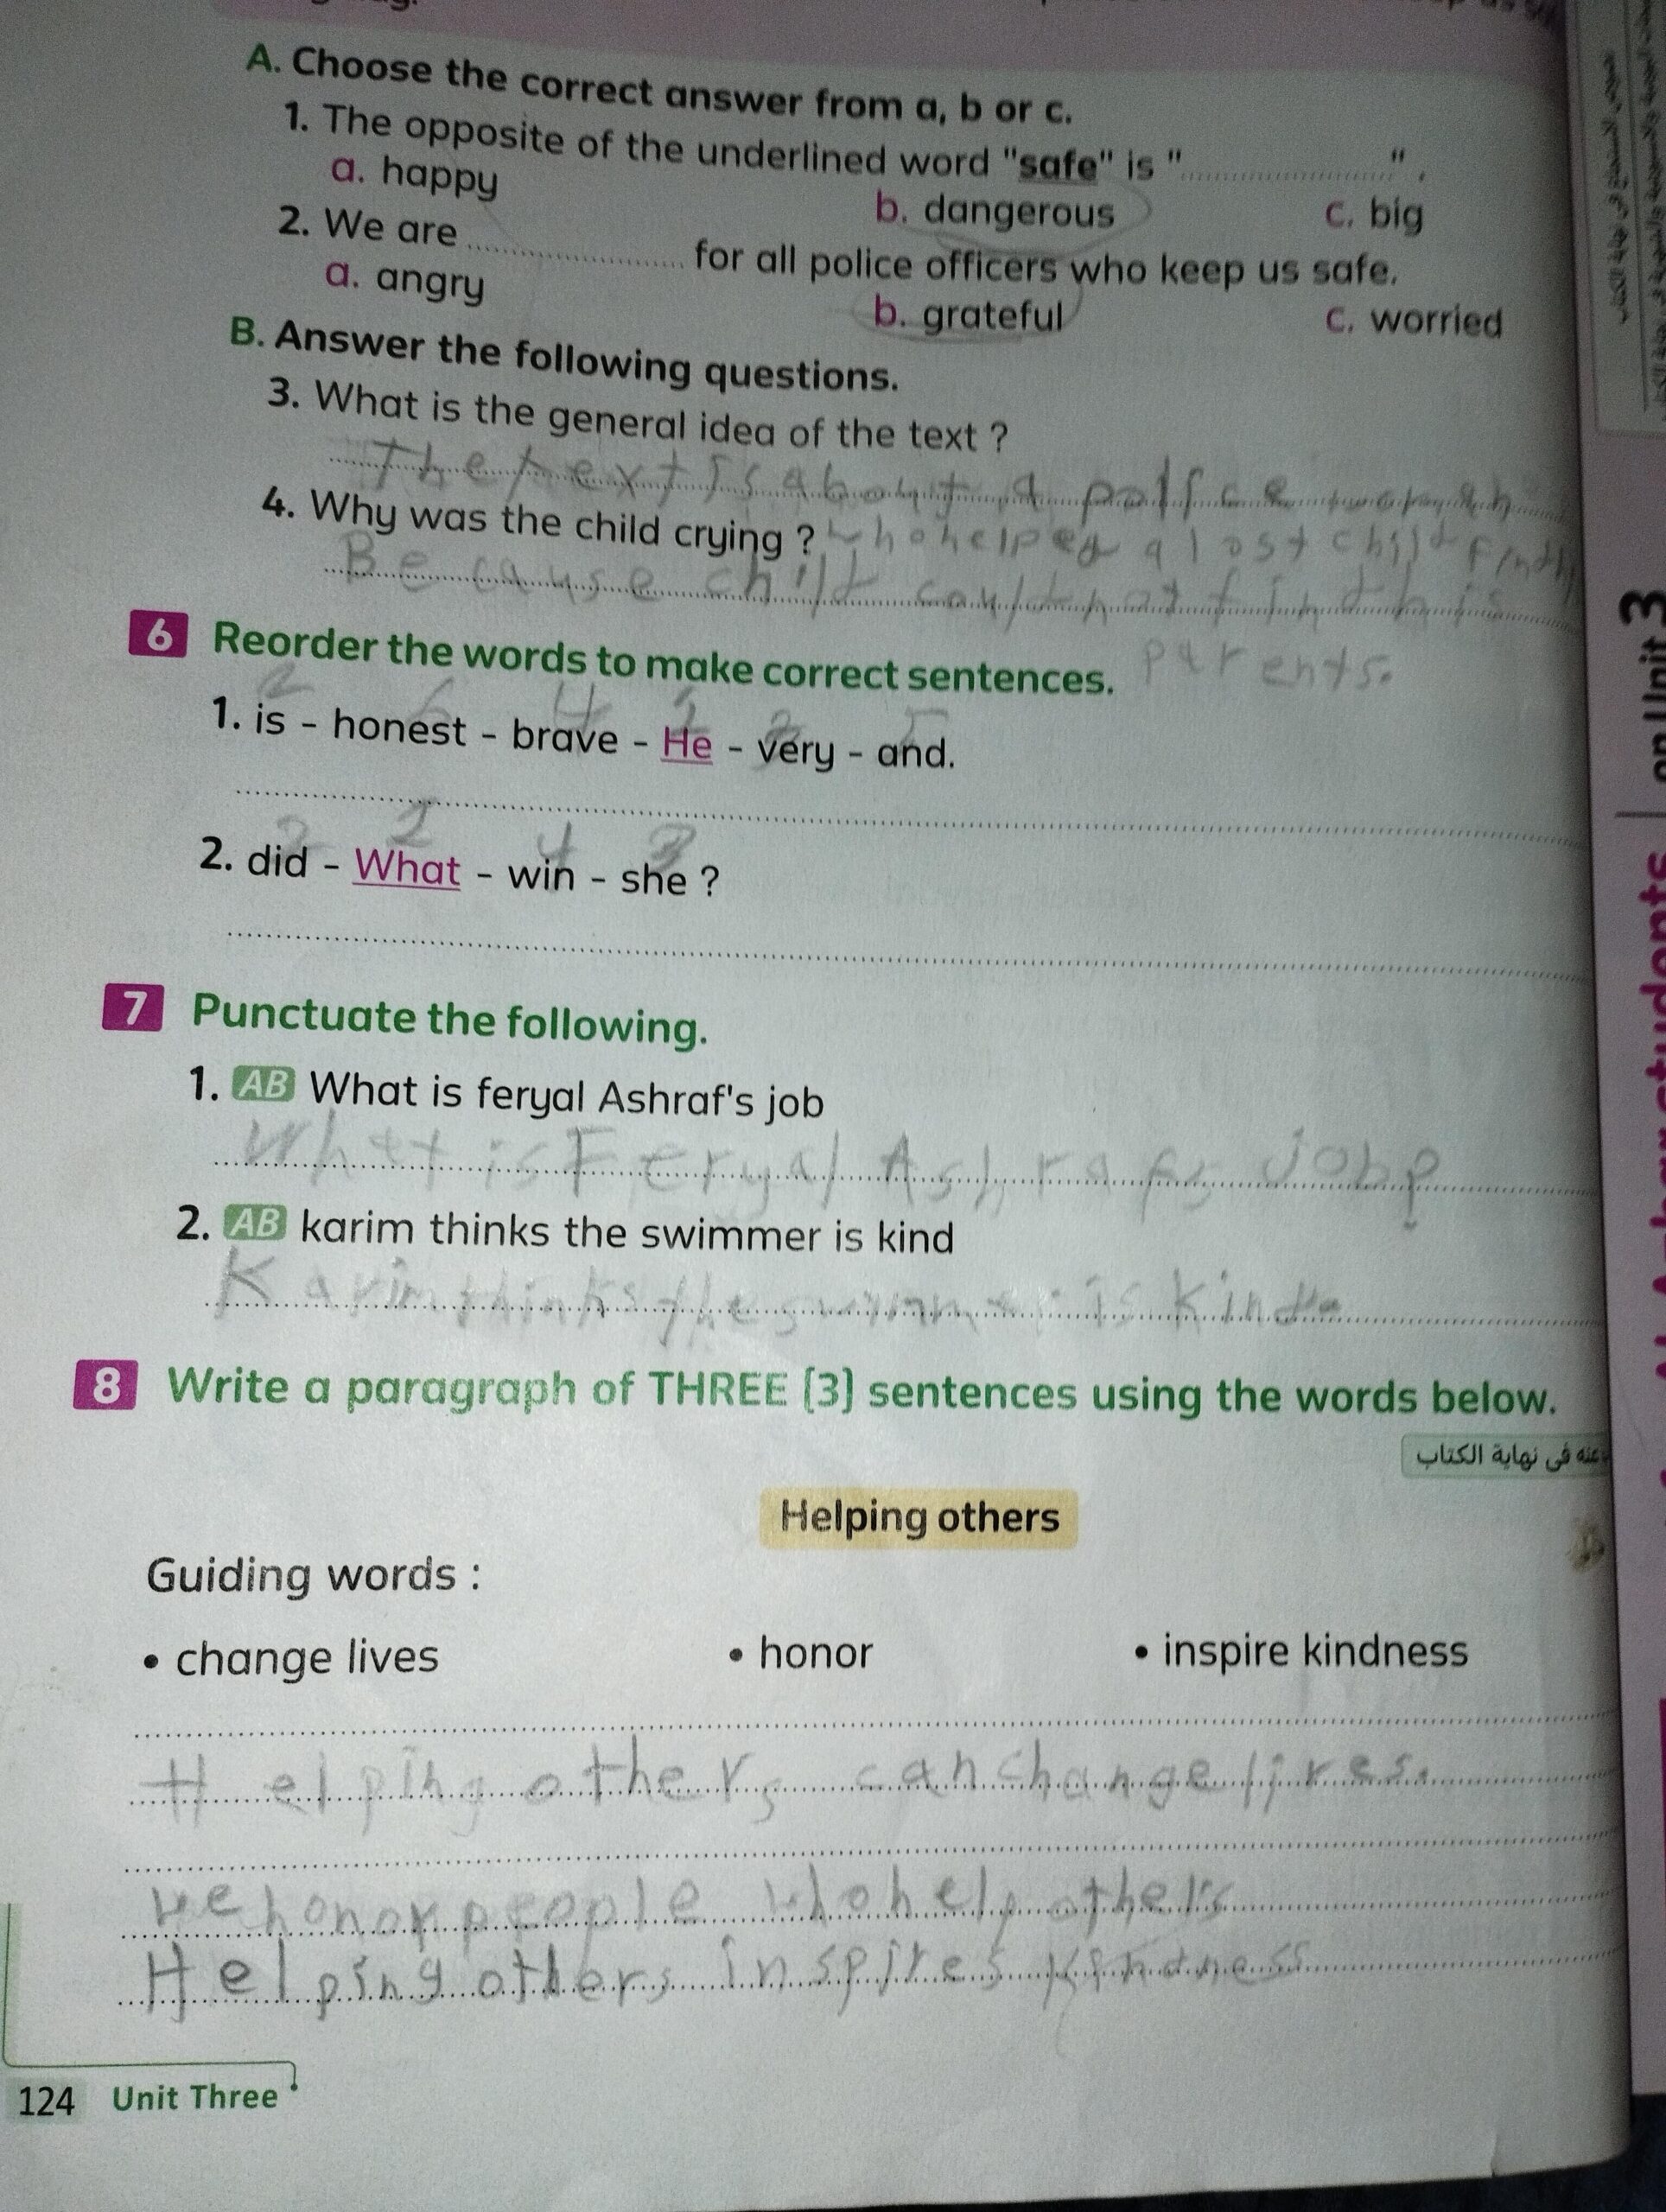 A. Choose the correct answer from a, b or c.
1. The opposite of the underlined word "safe" is "....................".
a. happy b. dangerous c. big
2. We are .................... for all police officers who keep us safe.
a. angry b. grateful c. worried
B. Answer the following questions.
3. What is the general idea of the text ?
The text is about a police woman
4. Why was the child crying ? who helped a lost child find
Because child could not find his
parents.
6 Reorder the words to make correct sentences.
2 6 4 1 3 5
1. is - honest - brave - He - very - and.
2 1 4 3
2. did - What - win - she ?
7 Punctuate the following.
1. AB What is feryal Ashraf's job
What is Feryal Ashraf's job?
2. AB karim thinks the swimmer is kind
Karim thinks the swimmer is kind.
8 Write a paragraph of THREE (3) sentences using the words below.
عنه فى نهاية الكتاب
Helping others
Guiding words :
• change lives • honor • inspire kindness
Helping others can change lives.
we honor people who help others
Helping others inspires kindness
124 Unit Three
on Unit 3
Al-Azhar students